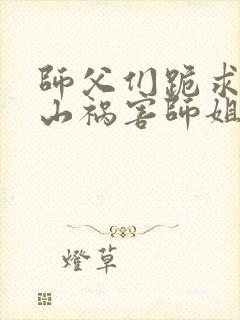 師父们跪求
山祸害師姐
燈草